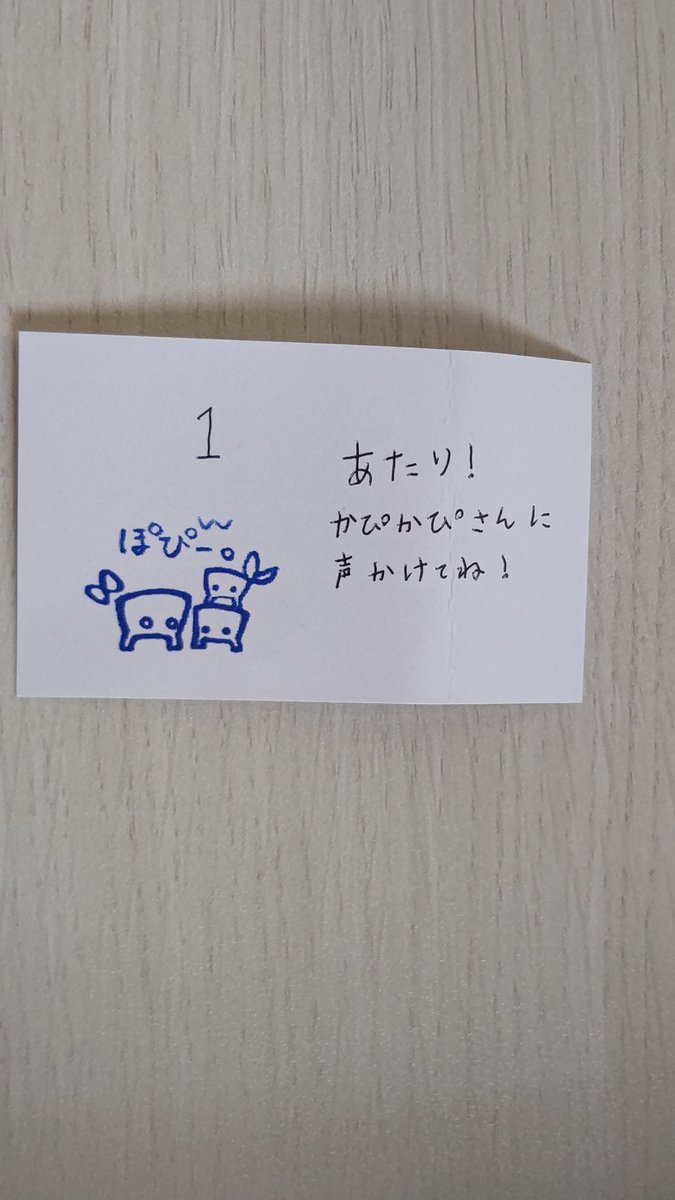 1
ぽぴー。
あたり!
かぴかぴさんに
声かけてね!